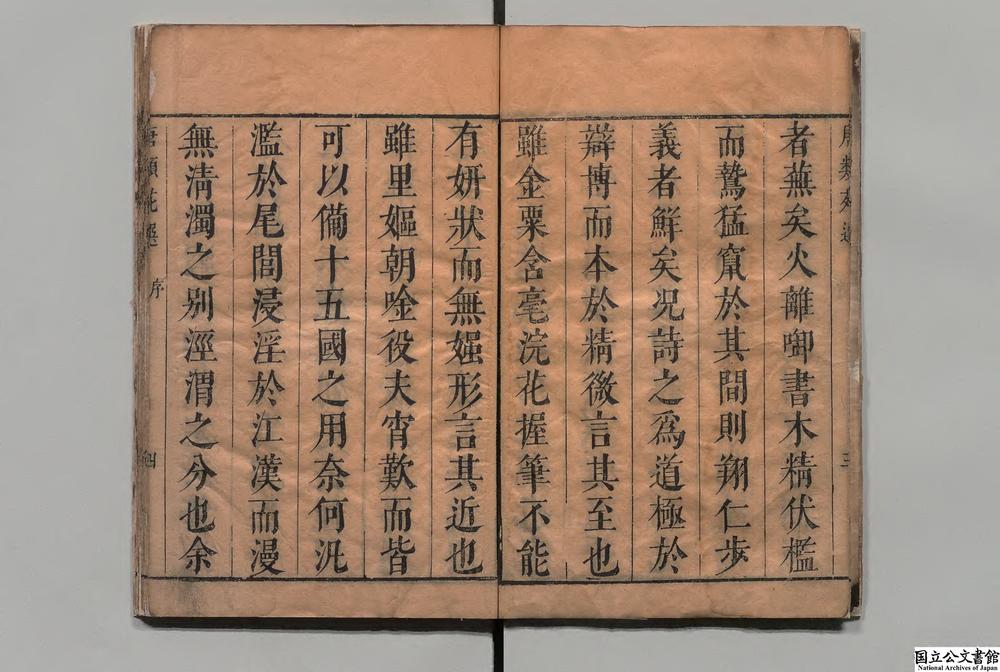 者蕪矣火離啣書木精伏檻
而鷙猛竄於其間則翔仁步
義者鮮矣况詩之爲道極於
辯博而本於精微言其至也
雖金粟含毫浣花握筆不能
有妍狀而無媸形言其近也
雖里嫗朝唫役夫宵歎而皆
可以備十五國之用奈何汎
濫於尾閭浸淫於江漢而漫
無清濁之别涇渭之分也余
唐類
序
四
国立公文書館
National Archives of Japan